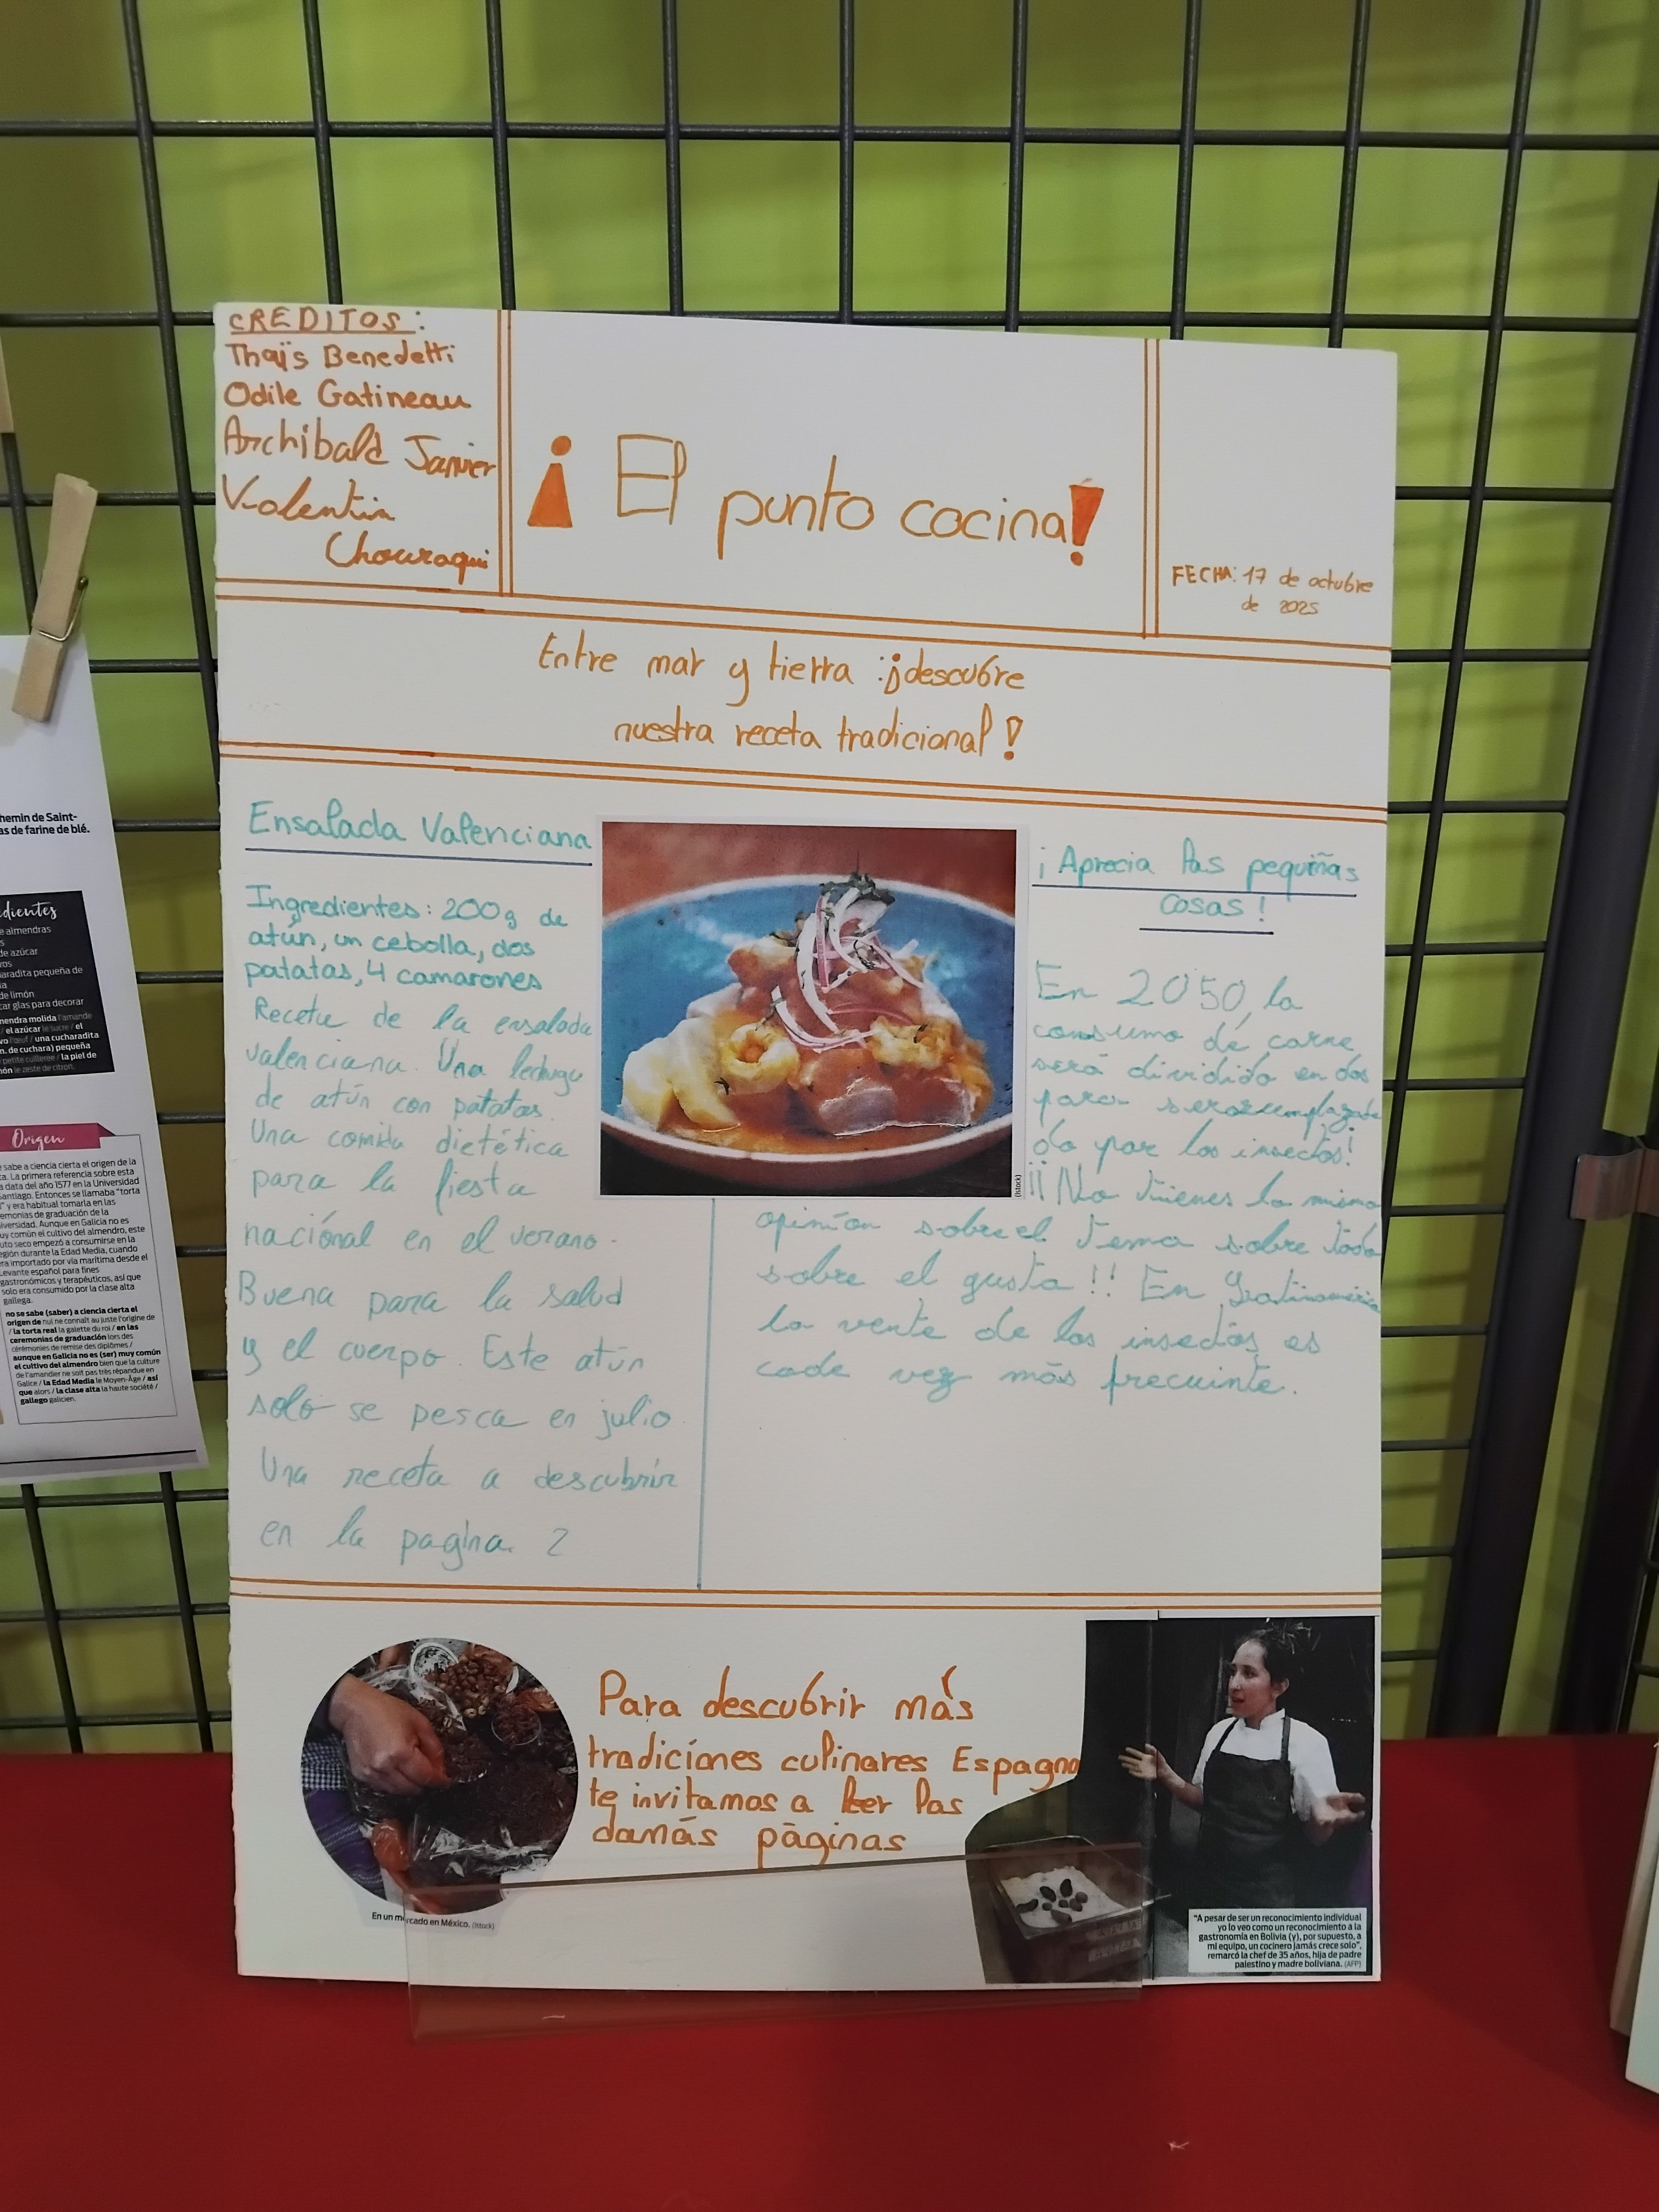 CREDITOS :
Thaïs Benedetti
Odile Gatineau
Archibald Janvier
Valentin
Chouraqui
¡ El punto cocina!
FECHA: 17 de octubre
de 2025
Entre mar y tierra : ¡descubre
nuestra receta tradicional !
Ensalada Valenciana
Ingredientes : 200g de
atún, un cebolla, dos
patatas, 4 camarones
Receta de la ensalada
valenciana. Una lechuga
de atún con patatas.
Una comida dietética
para la fiesta
nacíonal en el verano.
Buena para la salud
y el cuerpo. Este atún
solo se pesca en julio
Una receta a descubrir
en la pagina 2
(Istock)
¡ Aprecia las pequiñas
cosas !
En 2050, la
consumo de carne
será dividido en dos
para ser
do por los insectos!
¡¡ No tienes la misma
opinión sobre el tema sobre todo
sobre el gusto !! En
la vente de los insectos es
cade vez más frecuinte.
Para descubrir más
tradiciones culinares Espagna
te invitamos a leer las
damás páginas
En un mercado en México. (Istock)
"A pesar de ser un reconocimiento individual
yo lo veo como un reconocimiento a la
gastronomía en Bolivia (y), por supuesto, a
mi equipo, un cocinero jamás crece solo",
remarcó la chef de 35 años, hija de padre
palestino y madre boliviana. (AFP)
hemin de Saint-
as de farine de blé.
dientes
e almendras
s
de azúcar
vos
aradita pequeña de
a
de limón
car glas para decorar
mendra molida l'amande
/ el azúcar le sucre / el
vo l'œuf / una cucharadita
n. de cuchara) pequeña
petite cuillerée / la piel de
món le zeste de citron.
Origen
sabe a ciencia cierta el origen de la
ta. La primera referencia sobre esta
a data del año 1577 en la Universidad
Santiago. Entonces se llamaba "torta
l" y era habitual tomarla en las
emonias de graduación de la
iversidad. Aunque en Galicia no es
uy común el cultivo del almendro, este
uto seco empezó a consumirse en la
egión durante la Edad Media, cuando
era importado por vía marítima desde el
Levante español para fines
gastronómicos y terapéuticos, así que
solo era consumido por la clase alta
gallega.
no se sabe (saber) a ciencia cierta el
origen de nul ne connaît au juste l'origine de
/ la torta real la galette du roi / en las
ceremonias de graduación lors des
cérémonies de remise des diplômes /
aunque en Galicia no es (ser) muy común
el cultivo del almendro bien que la culture
de l'amandier ne soit pas très répandue en
Galice / la Edad Media le Moyen-Âge / así
que alors / la clase alta la haute société /
gallego galicien.